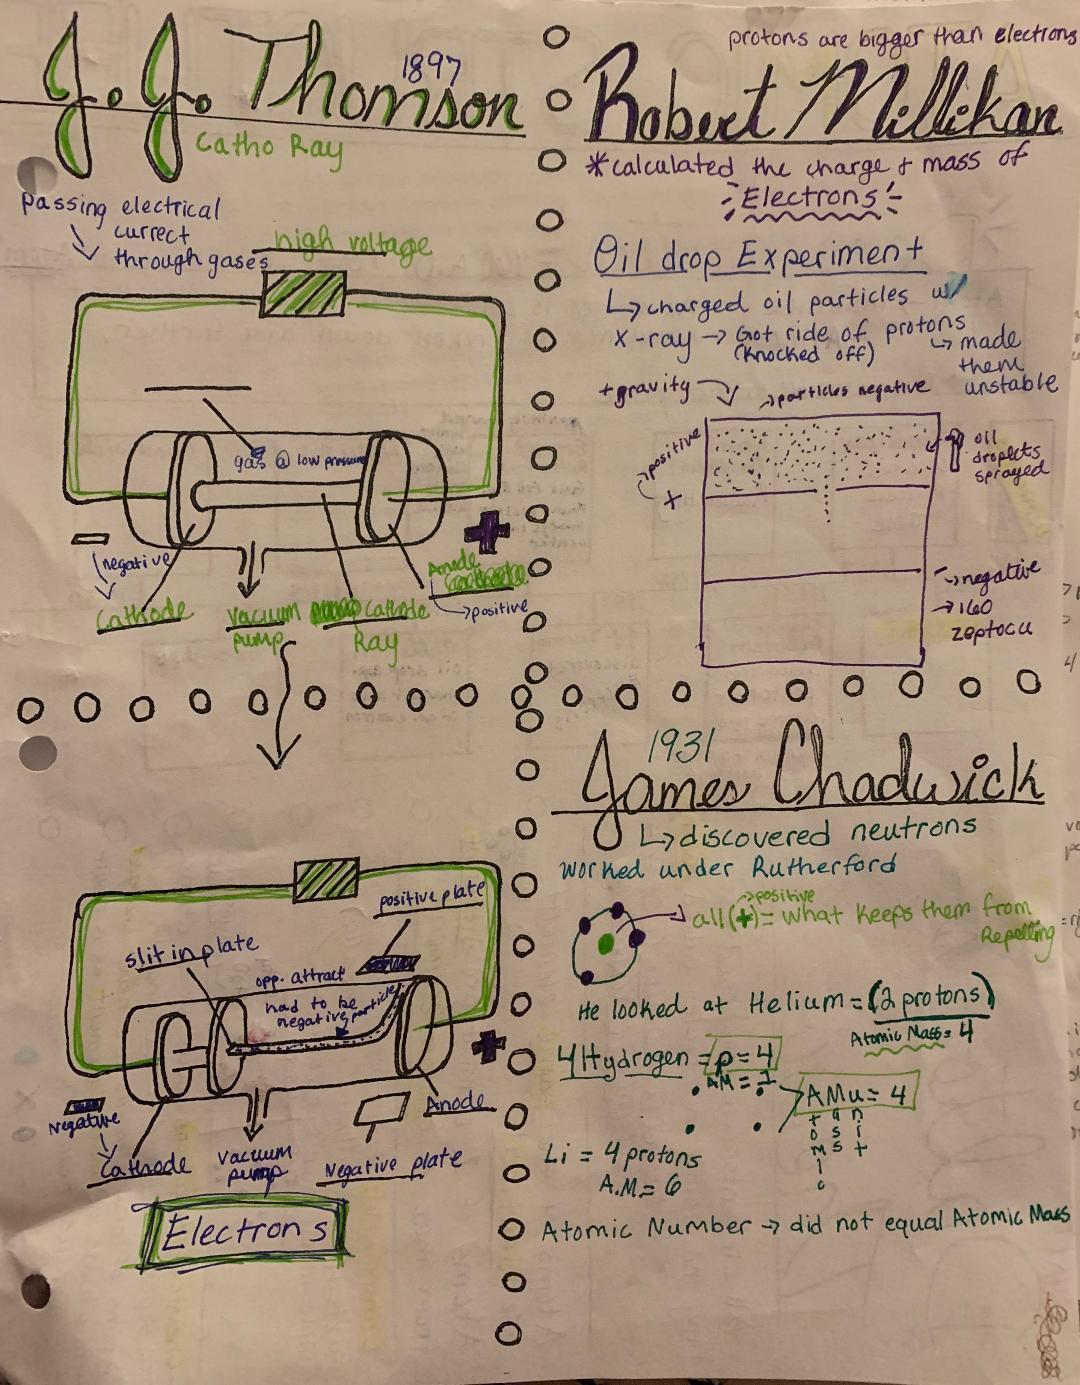 J. J. Thomson
1897
Catho Ray
Passing electrical
currect
through gases
high voltage
gas @ low pressure
negative
Cathode
vacuum
pump
Cathode
Ray
Anode
positive
protons are bigger than electrons
Robert Millikan
*calculated the charge & mass of
Electrons
Oil drop Experiment
↳ charged oil particles w/
X-ray → Got ride of protons
(knocked off)
↳ made
them
unstable
+ gravity
→ particles negative
→ positive
+
oil
droplets
sprayed
→ negative
→ 160
zeptocu
positive plate
slit in plate
opp. attract
had to be
negative particles
Negative
Cathode
vacuum
pump
Negative plate
Anode
+
Electrons
1931
James Chadwick
↳ discovered neutrons
worked under Rutherford
→ positive
all (+) = what keeps them from
Repelling
He looked at Helium = (2 protons)
Atomic Mass = 4
4 Hydrogen = p = 4
AM = 1
AMu = 4
tomic
ass
nit
Li = 4 protons
A.M. = 6
Atomic Number → did not equal Atomic Mass